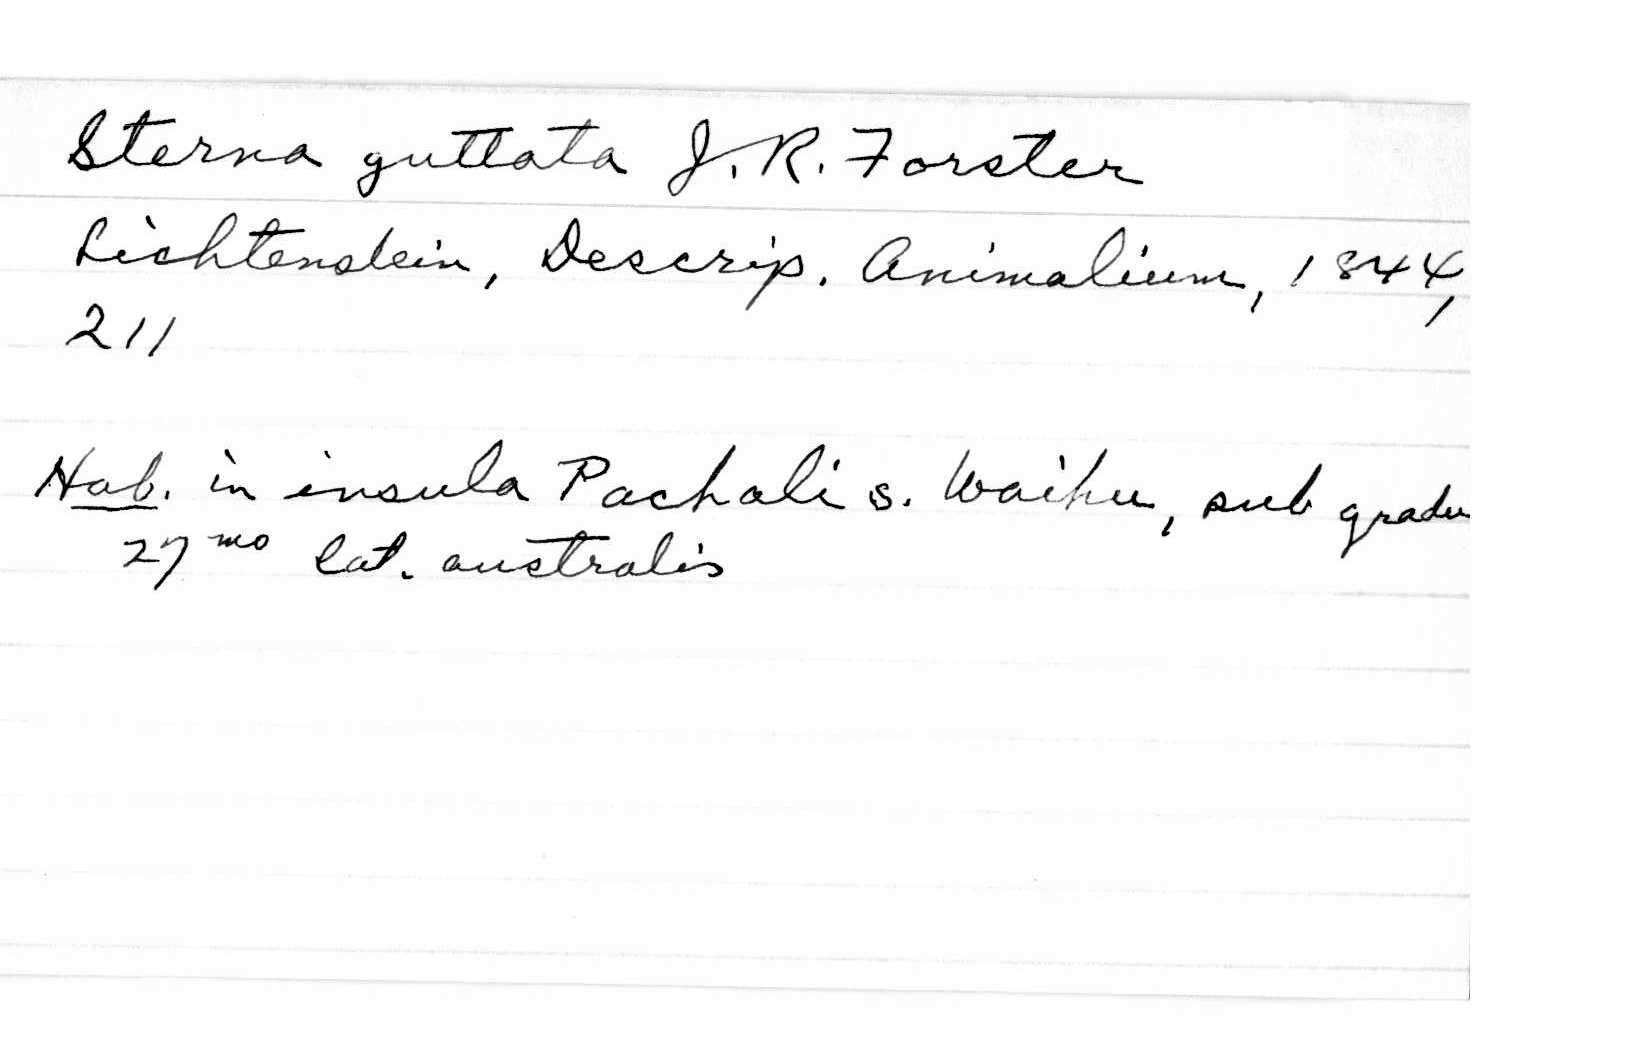 Sterna guttata J. R. Forster
Lichtenstein, Descrip. Animalium, 1844,
211
Hab. in insula Pachali s. Waihu, sub gradu
27 mo lat. australis